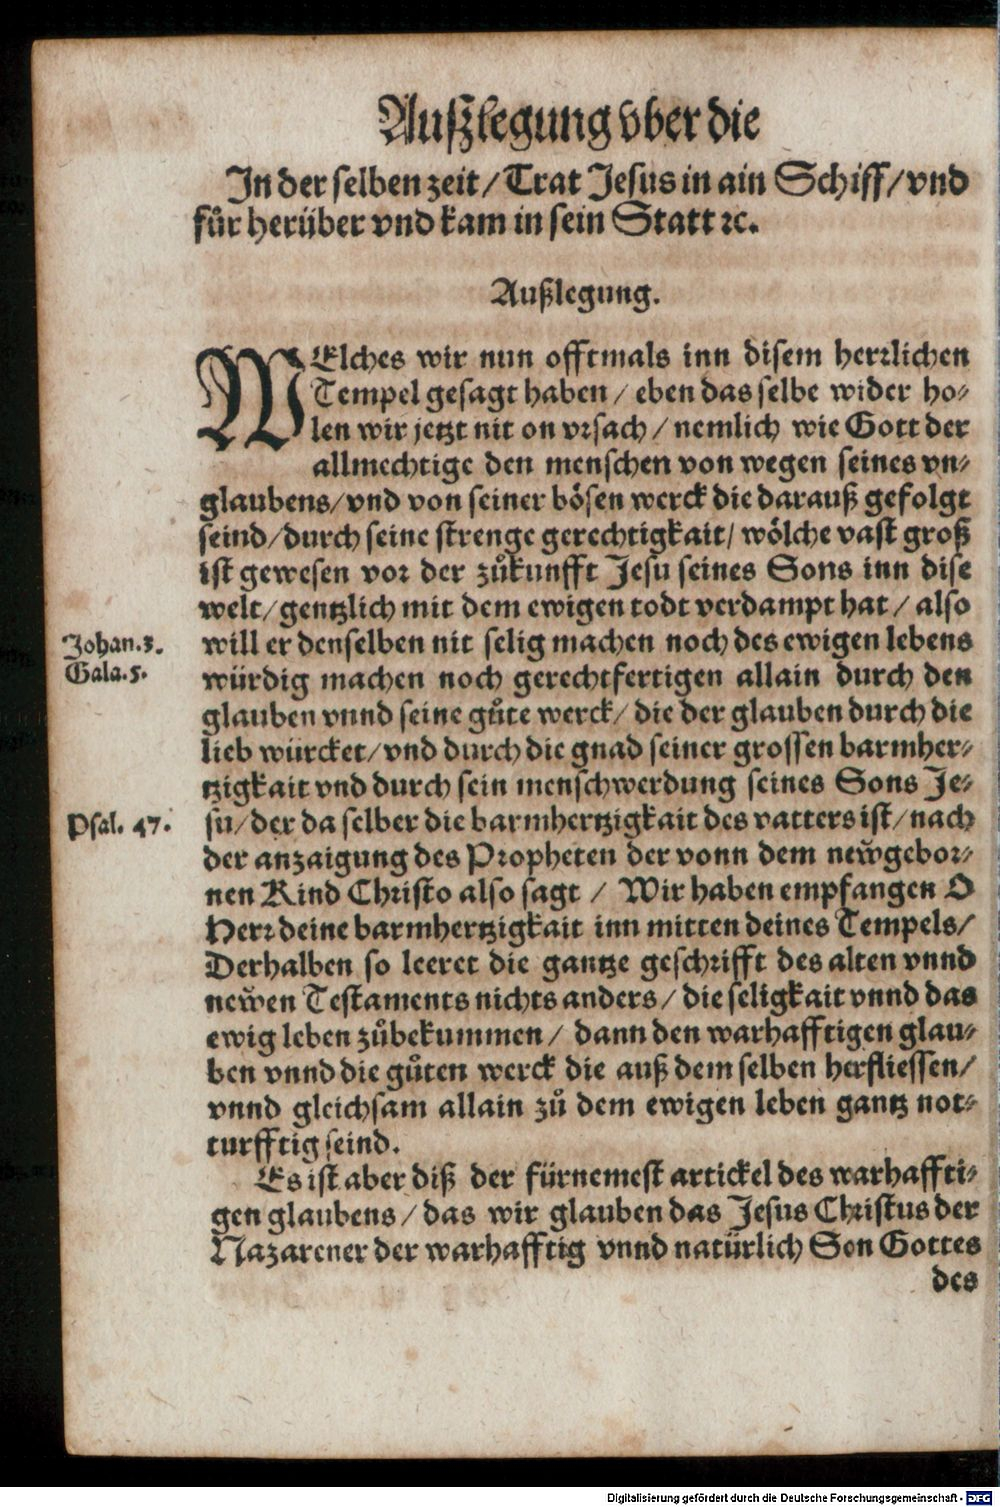 Außlegung vber die
In der selben zeit / Trat Jesus in ain Schiff / vnd
fůr herüber vnd kam in sein Statt ꝛc.
Außlegung.
WElches wir nun offtmals inn disem herꝛlichen
Tempel gesagt haben / eben das selbe wider ho⸗
len wir jetzt nit on vꝛsach / nemlich wie Gott der
allmechtige den menschen von wegen seines vn⸗
glaubens / vnd von seiner bösen werck die darauß gefolgt
seind / durch seine strenge gerechtigkait / wölche vast groß
ist gewesen voꝛ der zůkunfft Jesu seines Sons inn dise
welt / gentzlich mit dem ewigen todt verdampt hat / also
Johan. 3.
will er denselben nit selig machen noch des ewigen lebens
Gala. 5.
würdig machen noch gerechtfertigen allain durch den
glauben vnnd seine gůte werck / die der glauben durch die
lieb würcket / vnd durch die gnad seiner grossen barmher⸗
tzigkait vnd durch sein menschwerdung seines Sons Je⸗
Psal. 47.
su / der da selber die barmhertzigkait des vatters ist / nach
der anzaigung des Pꝛopheten der vonn dem newgeboꝛ⸗
nen Kind Chꝛisto also sagt / Wir haben empfangen O
Herꝛ deine barmhertzigkait inn mitten deines Tempels /
Derhalben so leeret die gantze geschꝛifft des alten vnnd
newen Testaments nichts anders / die seligkait vnnd das
ewig leben zůbekummen / dann den warhafftigen glau⸗
ben vnnd die gůten werck die auß dem selben herfliessen /
vnnd gleichsam allain zů dem ewigen leben gantz not⸗
turfftig seind.
Es ist aber diß der fürnemest artickel des warhaffti⸗
gen glaubens / das wir glauben das Jesus Chꝛistus der
Nazarener der warhafftig vnnd natürlich Son Gottes
des
Digitalisierung gefördert durch die Deutsche Forschungsgemeinschaft - DFG